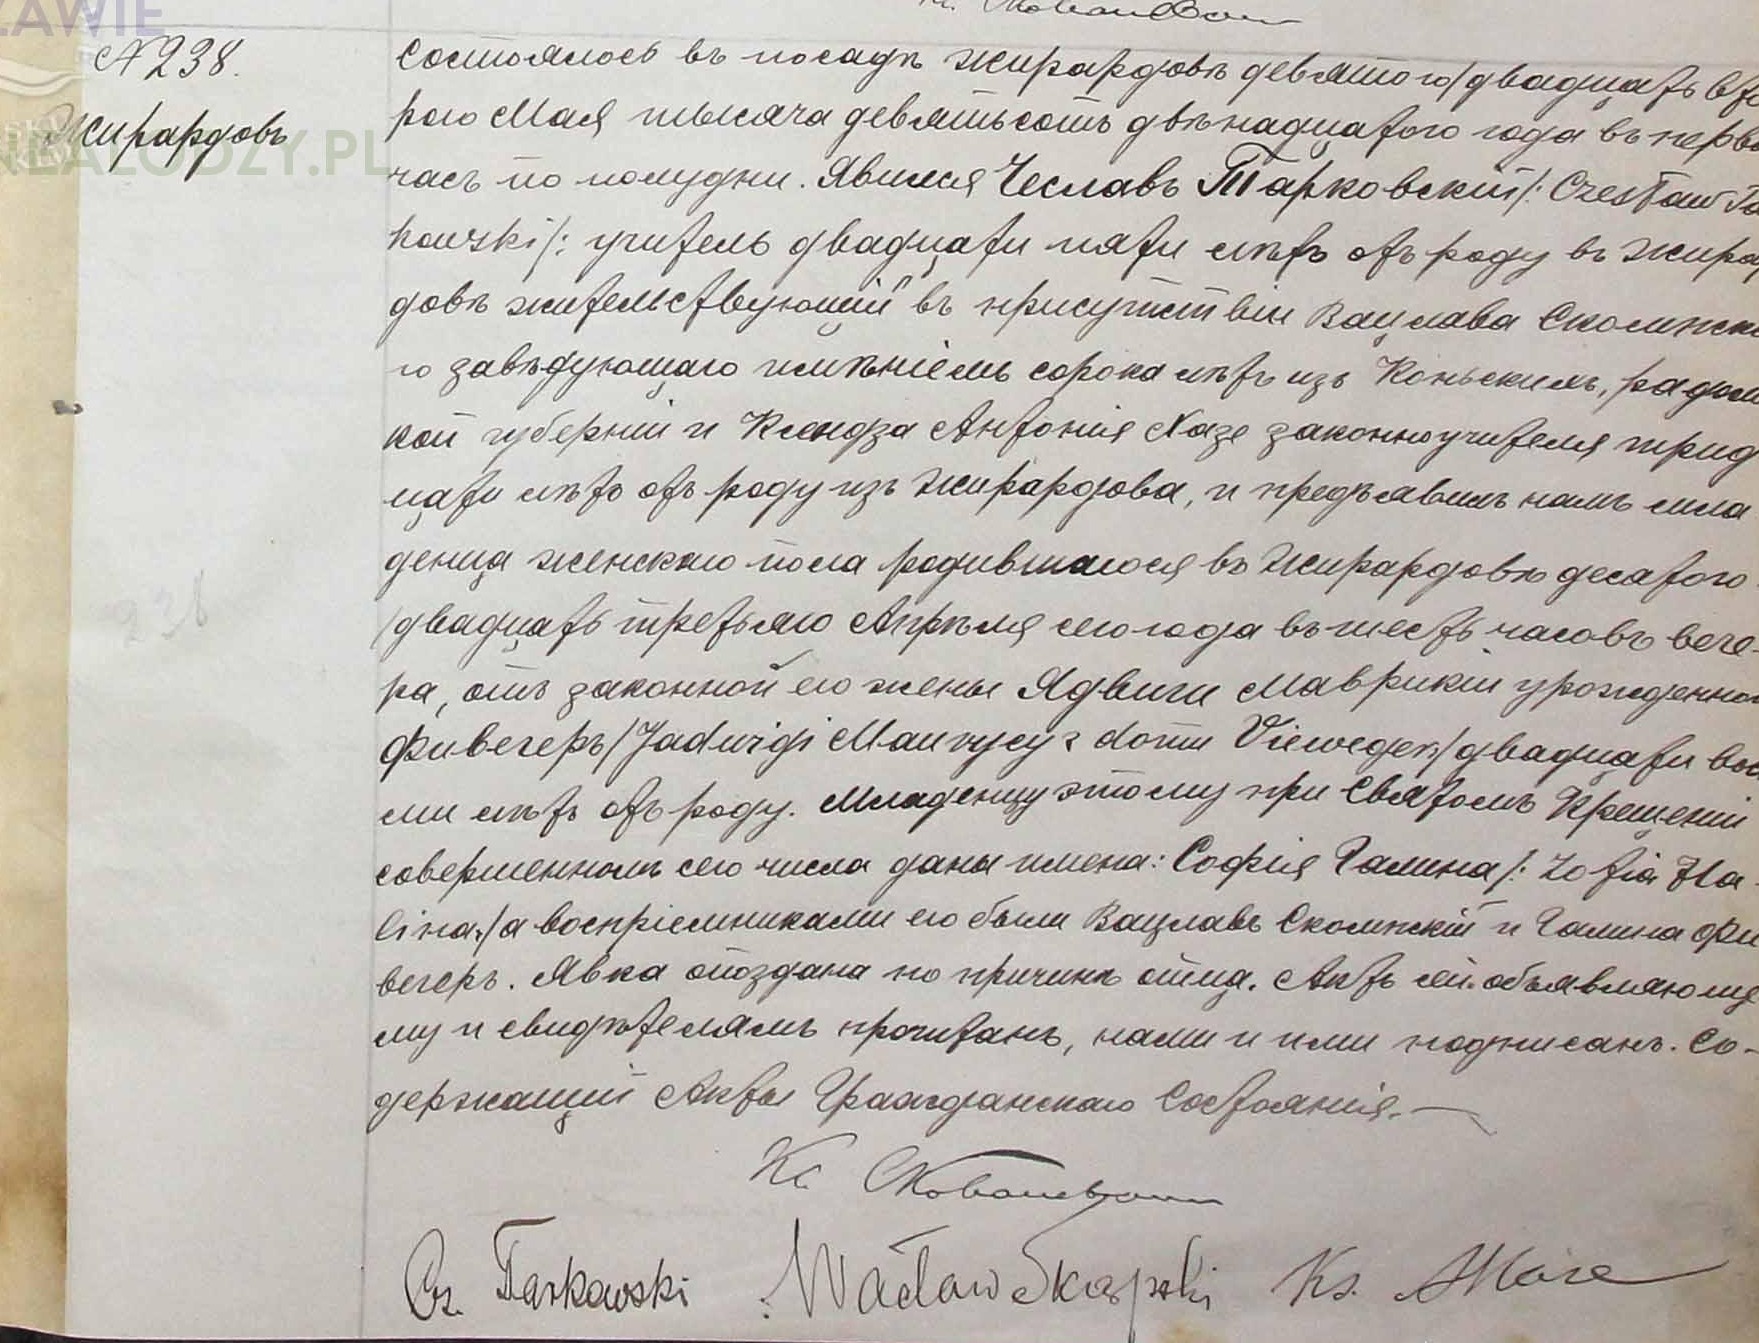 ZAWIE
N 238.
Жирардовъ
NEALODZY.PL
Состоялось въ посадѣ Жирардовѣ девятого/двадцать вто
рого Мая тысяча девятьсотъ двѣнадцатого года въ перво
часъ по полудни. Явился Чеславъ Тарковскій/: Czesław Ta
kowski/: учитель двадцати пяти лѣтъ отъ роду въ Жирар
довѣ жительствующій въ присутствіи Вацлава Сколимска
го завѣдующаго имѣніемъ сорока лѣтъ изъ Коньскихъ, радом
кой губерніи и Ксендза Антонія Хазе законноучителя трид
цати лѣтъ отъ роду изъ Жирардова, и предъявилъ намъ мла
денца женскаго пола родившагося въ Жирардовѣ десятого
/двадцать третьяго Апрѣля сего года въ шесть часовъ вече-
ра, отъ законной его жены Ядвиги Маврикіи урожденной
Фивегеръ/Jadwigi Maurycy z domu Vieweger/двадцати вось
ми лѣтъ отъ роду. Младенцу этому при Святомъ Крещеніи
совершенномъ сего числа даны имена: Софія Галина/: Zofia Ha-
lina./а воспріемниками его были Вацлавъ Сколимскій и Галина Фи
вегеръ. Явка опоздана по причинѣ отца. Актъ сей объявляюще
му и свидѣтелямъ прочитанъ, нами и ими подписанъ. Со-
держащій Акты Гражданскаго Состоянія.
238
Кс
Cz. Tarkowski Wacław Ks.